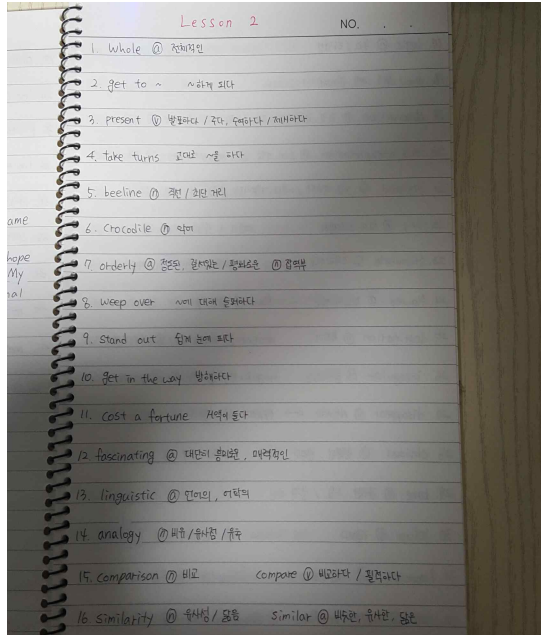 Lesson 2
NO. . .
1. Whole ⓐ 전체적인
2. get to ~ ~하게 되다
3. present ⓥ 발표하다 / 주다, 수여하다 / 제시하다
4. take turns 교대로 ~을 하다
5. beeline ⓝ 직선 / 최단 거리
6. Crocodile ⓝ 악어
7. orderly ⓐ 정돈된, 질서있는 / 평화로운 ⓝ 잡역부
8. weep over ~에 대해 슬퍼하다
9. stand out 쉽게 눈에 띄다
10. get in the way 방해하다
11. cost a fortune 거액이 들다
12. fascinating ⓐ 대단히 흥미로운, 매력적인
13. linguistic ⓐ 언어의, 어학의
14. analogy ⓝ 비유 / 유사점 / 유추
15. comparison ⓝ 비교 compare ⓥ 비교하다 / 필적하다
16. Similarity ⓝ 유사성 / 닮음 Similar ⓐ 비슷한, 유사한, 닮은
ame
hope
My
nal